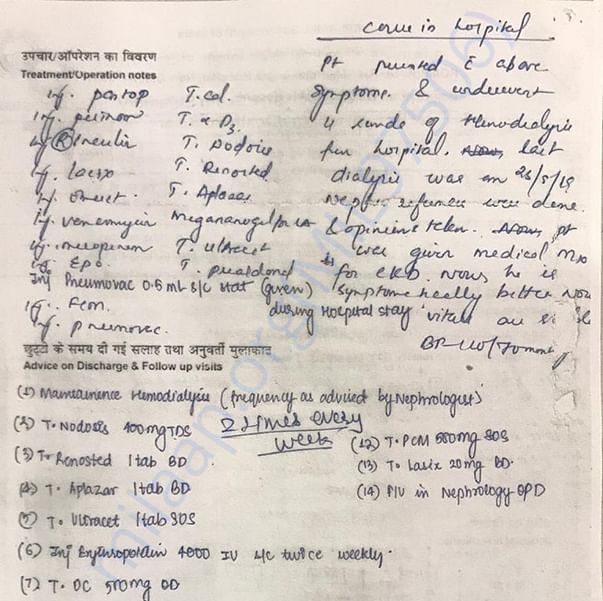 Course in hospital
उपचार/ऑपरेशन का विवरण
Treatment/Operation notes
Inj. pantop
Inj.
Inj. (R) Insulin
Inj. Lasix
Inj. Emset
Inj. vancomycin
Inj. meropenem
Inj. EPO
Inj Pneumovac 0.5 mL s/c stat (given)
during Hospital stay
Inj. FCM
Inj. pneumovac.
T. cal.
T. α-D3.
T. Nodosis
T. Renosted
T. Aplazar
Megananogel for LA
T. ultracet
T.
Pt presented c̄ above
symptoms & underwent
4 rounds of Hemodialysis
from hospital. last
dialysis was on 28/5/19
Nephro reference was done
& opinion taken. pt
was given medical
for CKD. Now he is
symptomatically better now
vitals are
छुट्टी के समय दी गई सलाह तथा अनुवर्ती मुलाकात
Advice on Discharge & Follow up visits
(1) Maintainence Hemodialysis (frequency as advised by Nephrologist)
2 times every
week
(2) T. Nodosis 400mg TDS
(3) T. Renosted 1 tab BD
(4) T. Aplazar 1 tab BD
(5) T. Ultracet 1 tab SOS
(6) Inj Erythropoietin 4000 IU s/c twice weekly.
(7) T. OC 500mg OD
(12) T. PCM 500mg SOS
(13) T. Lasix 20mg BD.
(14) F/U in Nephrology OPD
milaap.org